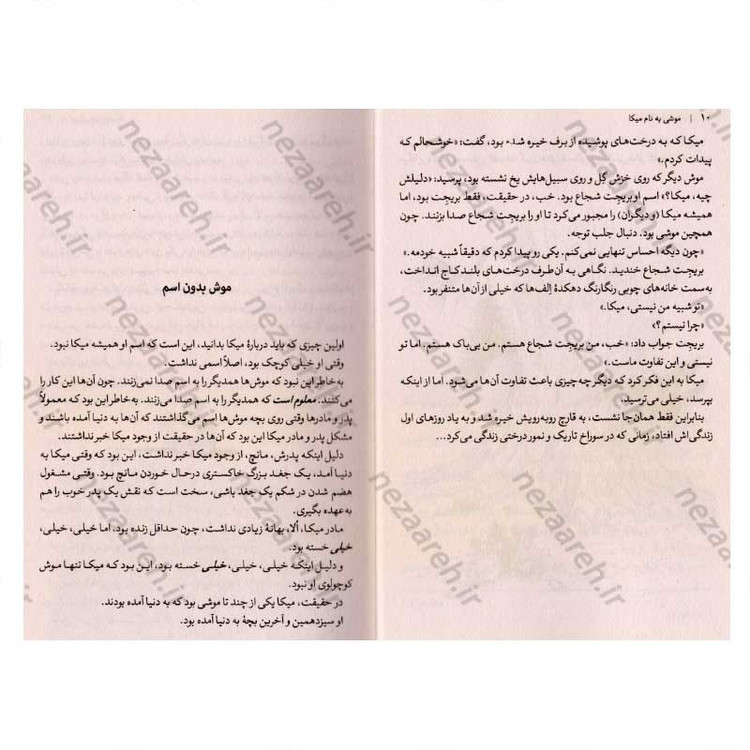 ۱۰ | موشی به نام میکا
میکا که به درخت‌های پوشیده از برف خیره شده بود، گفت: «خوشحالم که
پیدات کردم.»
موش دیگر که روی خزش گِل و روی سبیل‌هایش یخ نشسته بود، پرسید: «دلیلش
چیه، میکا؟» اسم او بریجِت شجاع بود. خب، در حقیقت، فقط بریجت بود، اما
همیشه میکا (و دیگران) را مجبور می‌کرد تا او را بریجت شجاع صدا بزنند. چون
همچین موشی بود. دنبال جلب توجه.
«چون دیگه احساس تنهایی نمی‌کنم. یکی رو پیدا کردم که دقیقاً شبیه خودمه.»
بریجت شجاع خندید. نگاهی به آن‌طرف درخت‌های بلند کاج انداخت،
به سمت خانه‌های چوبی رنگارنگ دهکدهٔ اِلف‌ها که خیلی از آن‌ها متنفر بود.
«تو شبیه من نیستی، میکا.»
«چرا نیستم؟»
بریجت جواب داد: «خب، من بریجت شجاع هستم. من بی‌باک هستم. اما تو
نیستی و این تفاوت ماست.»
میکا به این فکر کرد که دیگر چه چیزی باعث تفاوت آن‌ها می‌شود. اما از اینکه
بپرسد، خیلی می‌ترسید.
بنابراین فقط همان‌جا نشست، به قارچ روبه‌رویش خیره شد و به یاد روزهای اول
زندگی‌اش افتاد، زمانی که در سوراخ تاریک و نمور درختی زندگی می‌کرد...
موش بدون اسم
اولین چیزی که باید دربارهٔ میکا بدانید، این است که اسم او همیشه میکا نبود.
وقتی او خیلی کوچک بود، اصلاً اسمی نداشت.
به خاطر این نبود که موش‌ها همدیگر را به اسم صدا نمی‌زنند. چون آن‌ها این کار را
می‌کنند. معلوم است که همدیگر را به اسم صدا می‌زنند. به خاطر این بود که معمولاً
پدر و مادرها وقتی روی بچه موش‌ها اسم می‌گذاشتند که آن‌ها به دنیا آمده باشند و
مشکل پدر و مادر میکا این بود که آن‌ها در حقیقت از وجود میکا خبر نداشتند.
دلیل اینکه پدرش، مانچ، از وجود میکا خبر نداشت، این بود که وقتی میکا به
دنیا آمد، یک جغد بزرگ خاکستری درحال خوردن مانچ بود. وقتی مشغول
هضم شدن در شکم یک جغد باشی، سخت است که نقش یک پدر خوب را هم
به عهده بگیری.
مادر میکا، اُلا، بهانهٔ زیادی نداشت، چون حداقل زنده بود. اما خیلی، خیلی،
خیلی خسته بود.
و دلیل اینکه خیلی، خیلی، خیلی خسته بود، این بود که میکا تنها موش
کوچولوی او نبود.
در حقیقت، میکا یکی از چند تا موشی بود که به دنیا آمده بودند.
او سیزدهمین و آخرین بچهٔ به دنیا آمده بود.
nezaareh.ir